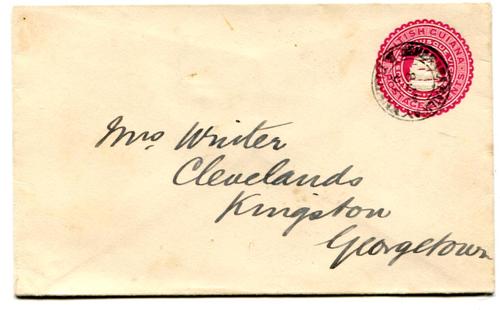 BRITISH GUIANA
POSTAGE
Mrs Winter
Clevelands
Kingston
Georgetown